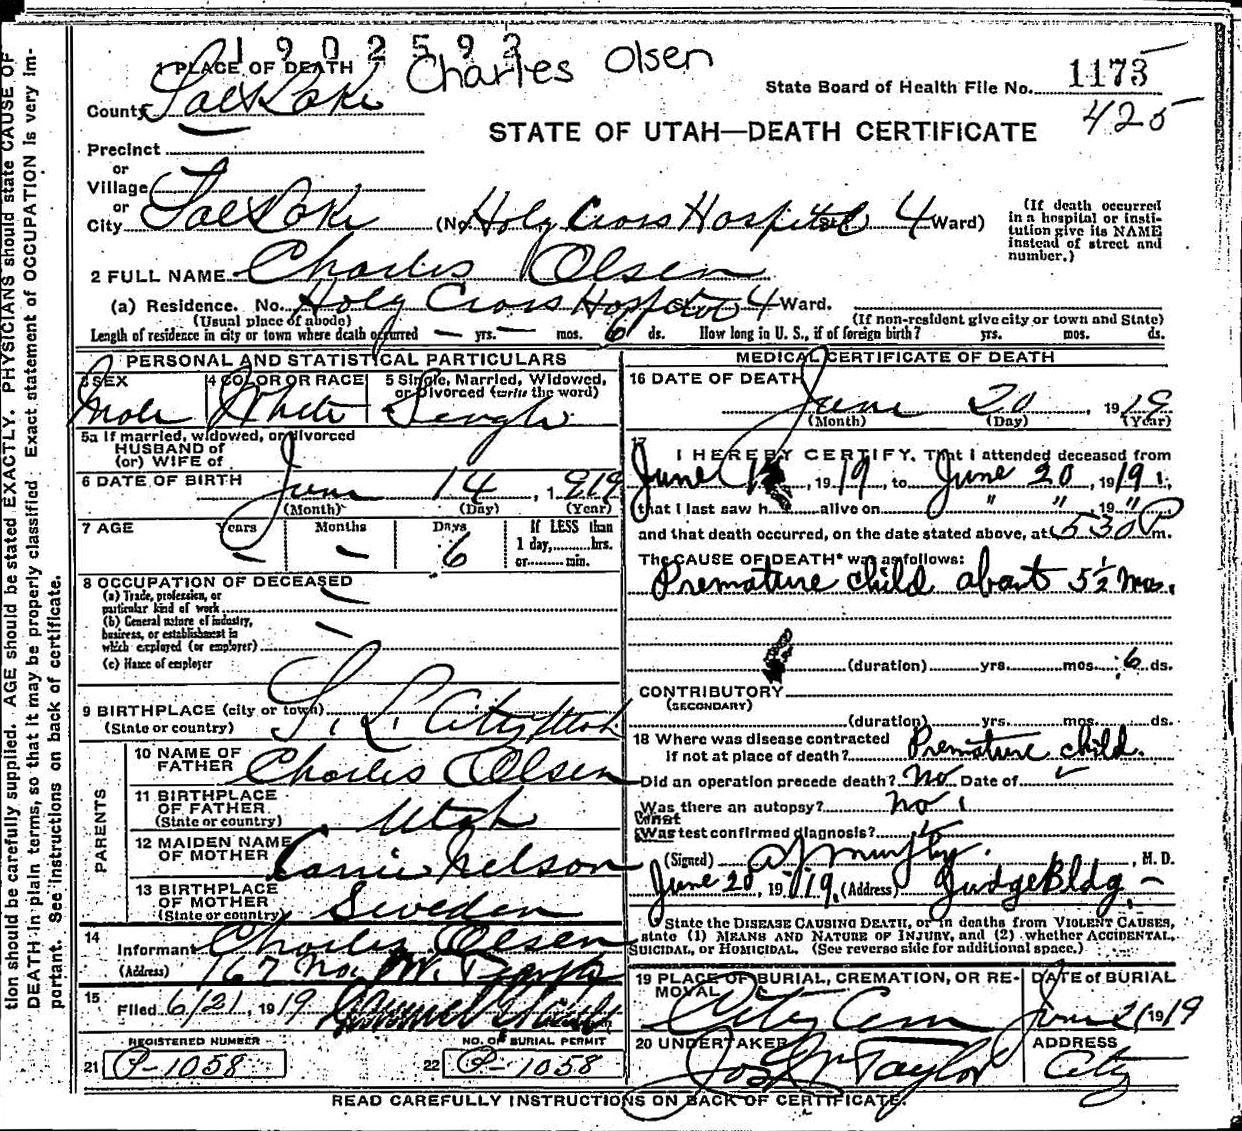 1902592
1 PLACE OF DEATH Charles Olsen
County Salt Lake
State Board of Health File No. 1173
425
STATE OF UTAH—DEATH CERTIFICATE
Precinct
or
Village
or
City Salt Lake (No. Holy Cross Hospital St. 4 Ward)
(If death occurred in a hospital or insti-
tution give its NAME
instead of street and
number.)
2 FULL NAME Charles Olsen
(a) Residence. No. Holy Cross Hospital 4 Ward.
(Usual place of abode) (If non-resident give city or town and State)
Length of residence in city or town where death occurred — yrs. — mos. 6 ds. How long in U. S., if of foreign birth? yrs. mos. ds.
PERSONAL AND STATISTICAL PARTICULARS
3 SEX 4 COLOR OR RACE 5 Single, Married, Widowed,
or Divorced (write the word)
Male White Single
5a If married, widowed, or divorced
HUSBAND of
(or) WIFE of
6 DATE OF BIRTH June 14, 1919
(Month) (Day) (Year)
7 AGE Years Months Days If LESS than
— — 6 1 day, hrs.
or min.
8 OCCUPATION OF DECEASED
(a) Trade, profession, or
particular kind of work —
(b) General nature of industry,
business, or establishment in
which employed (or employer) —
(c) Name of employer
9 BIRTHPLACE (city or town) S. L. City Utah
(State or country)
PARENTS
10 NAME OF
FATHER Charles Olsen
11 BIRTHPLACE
OF FATHER
(State or country) Utah
12 MAIDEN NAME
OF MOTHER Carrie Nelson
13 BIRTHPLACE
OF MOTHER
(State or country) Sweden
14
Informant Charles Olsen
(Address) 167 No. W. Temple
15
Filed 6/21, 1919
REGISTERED NUMBER NO. OF BURIAL PERMIT
21 P-1058 22 P-1058
MEDICAL CERTIFICATE OF DEATH
16 DATE OF DEATH
June 20, 1919
(Month) (Day) (Year)
17 I HEREBY CERTIFY, That I attended deceased from
June, 1919, to June 20, 191,
that I last saw h alive on " ", 19 "
and that death occurred, on the date stated above, at 530 P m.
The CAUSE OF DEATH* was as follows:
Premature child about 5½ Mos.
(duration) yrs. mos. 6 ds.
CONTRIBUTORY
(SECONDARY)
(duration) yrs. mos. ds.
18 Where was disease contracted
if not at place of death? Premature child.
Did an operation precede death? No Date of
Was there an autopsy? No
What
Was test confirmed diagnosis?
(Signed) Murphy, M. D.
June 20, 1919, (Address) Judge Bldg —
*State the DISEASE CAUSING DEATH, or in deaths from VIOLENT CAUSES,
state (1) MEANS AND NATURE OF INJURY, and (2) whether ACCIDENTAL,
SUICIDAL, or HOMICIDAL. (See reverse side for additional space.)
19 PLACE OF BURIAL, CREMATION, OR RE-
MOVAL City Cem
DATE of BURIAL
June 21 1919
20 UNDERTAKER ADDRESS
Jos Wm Taylor City
READ CAREFULLY INSTRUCTIONS ON BACK OF CERTIFICATE.
tion should be carefully supplied. AGE should be stated EXACTLY. PHYSICIANS should state CAUSE OF
DEATH in plain terms, so that it may be properly classified. Exact statement of OCCUPATION is very im-
portant. See instructions on back of certificate.